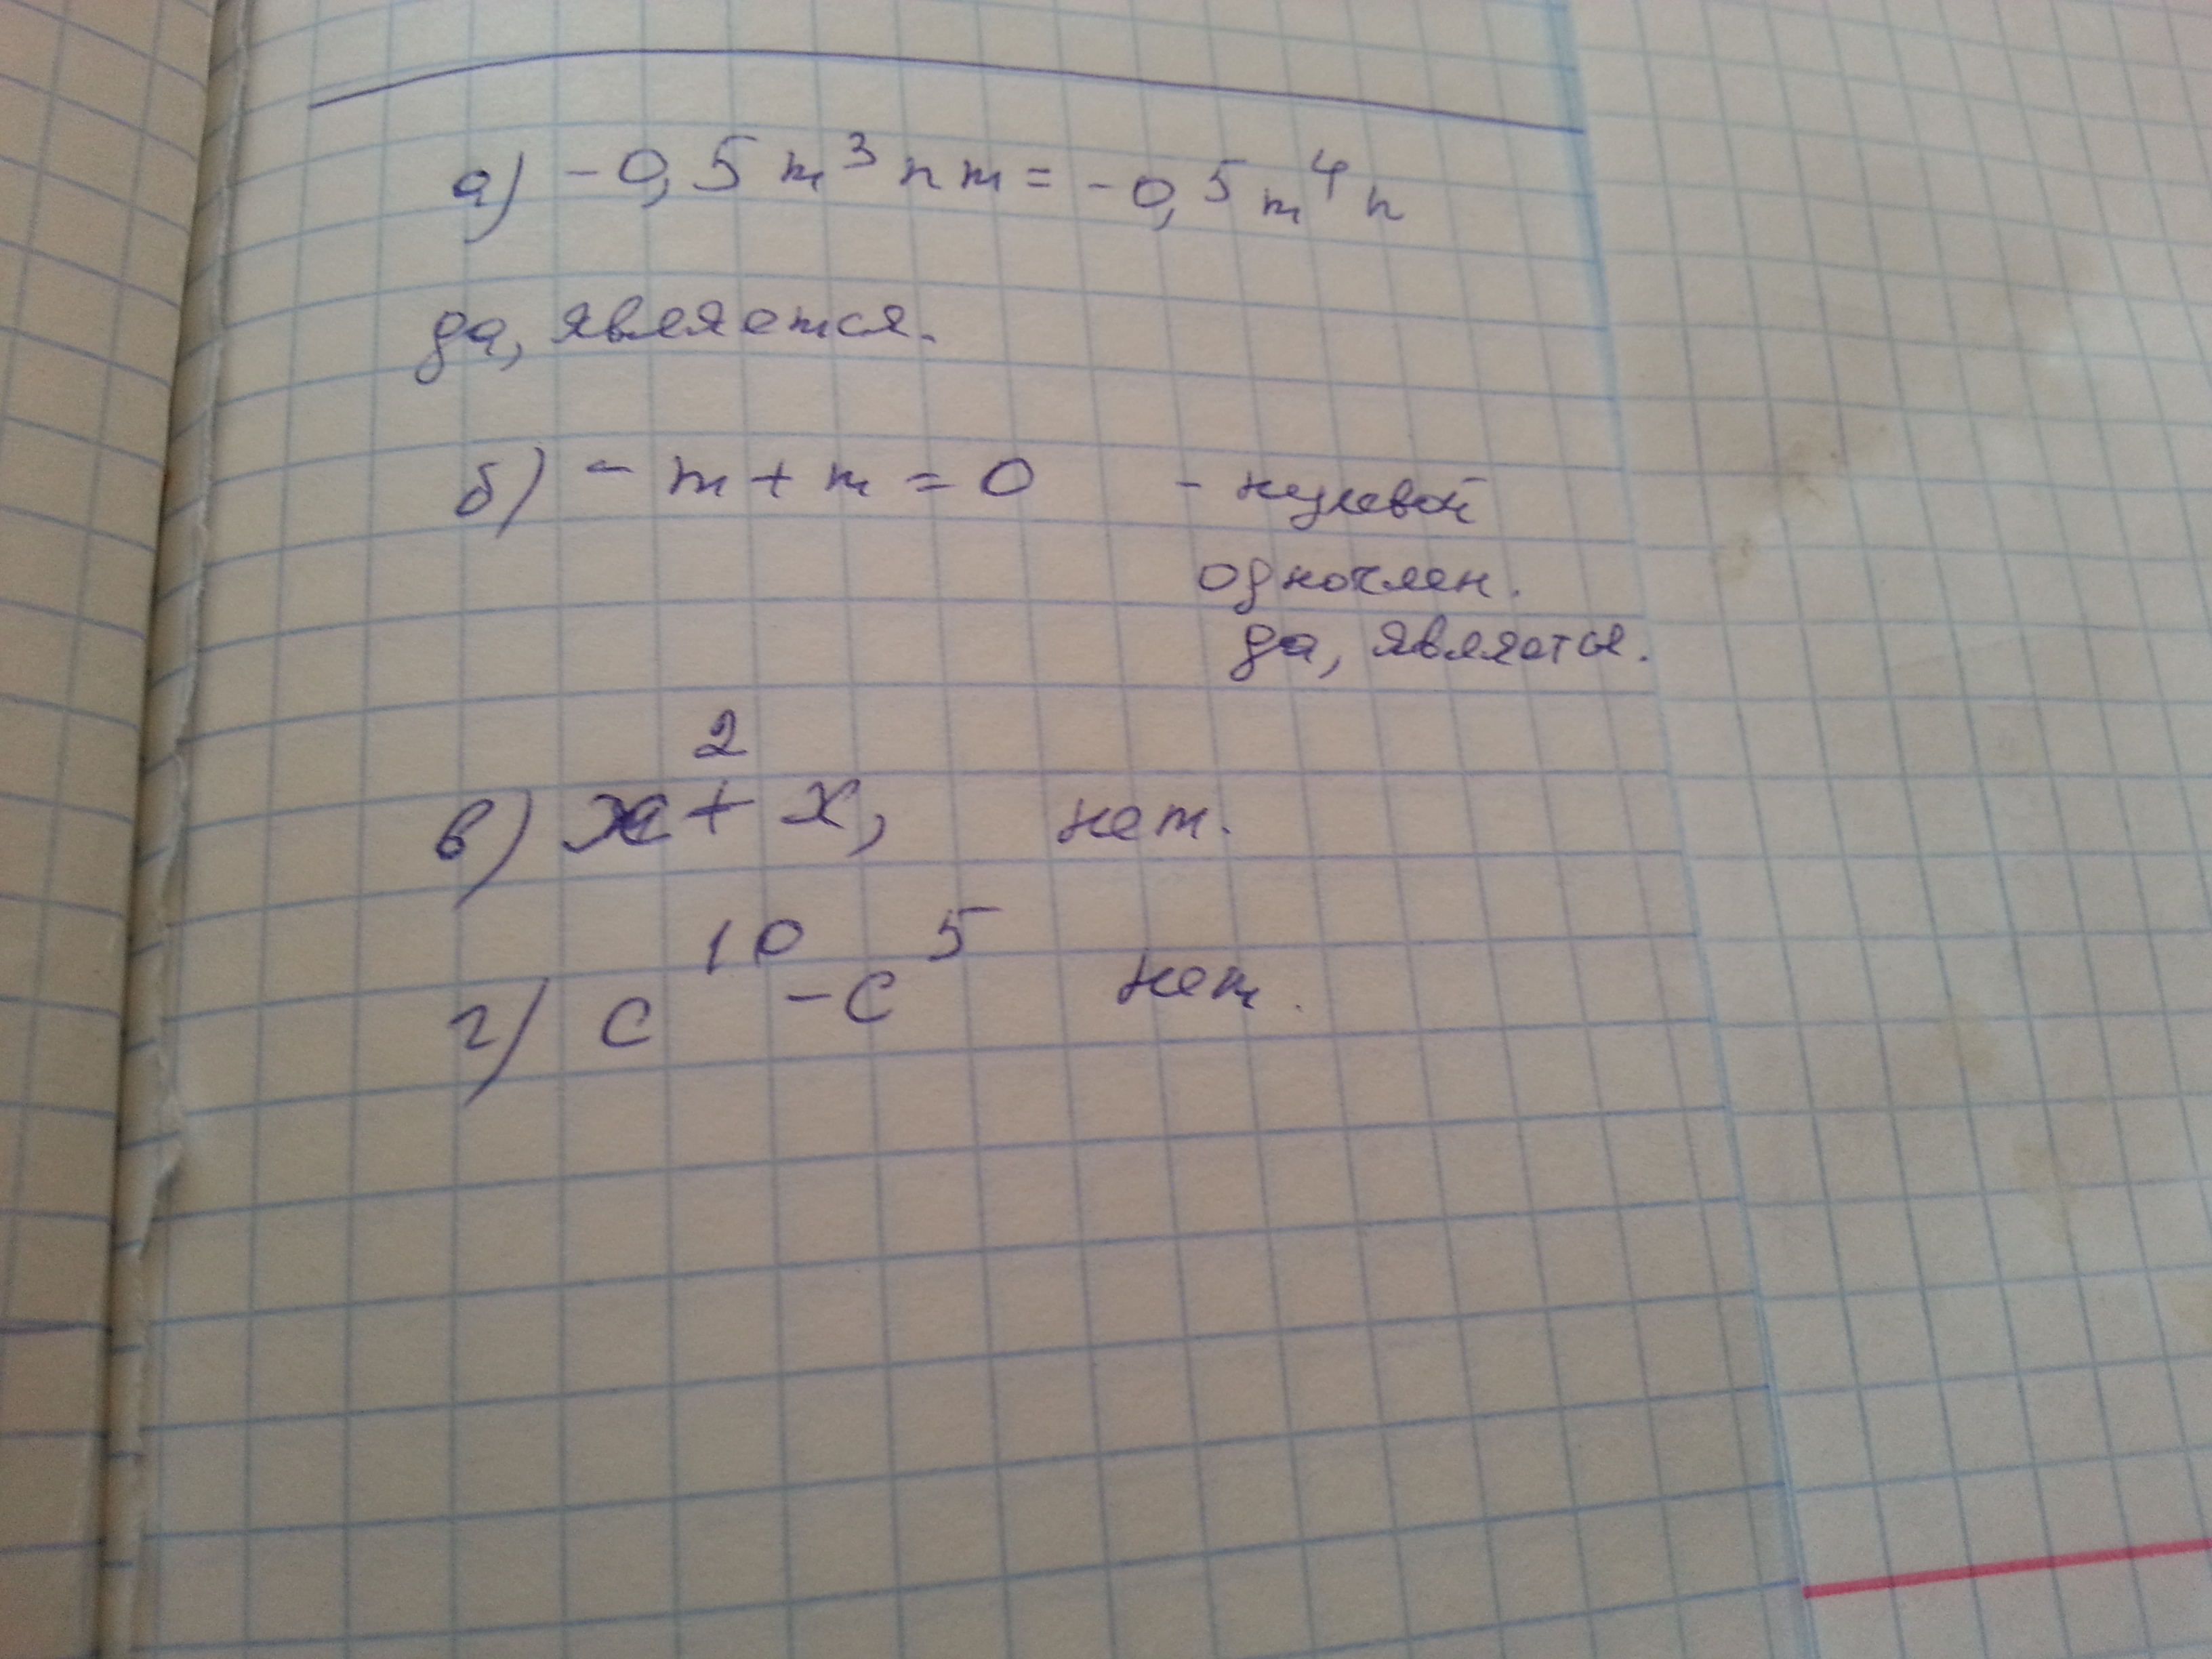 а) -0,5 m³ n m = -0,5 m⁴ n
да, является.
б) - m + m = 0 - нулевой
одночлен.
да, является.
в) x² + x, нет.
г) c¹⁰ - c⁵ нет.